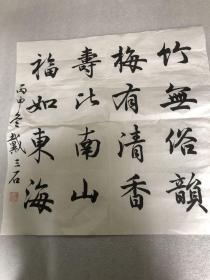 竹無俗韻
梅有清香
壽比南山
福如東海
丙申冬戴三石